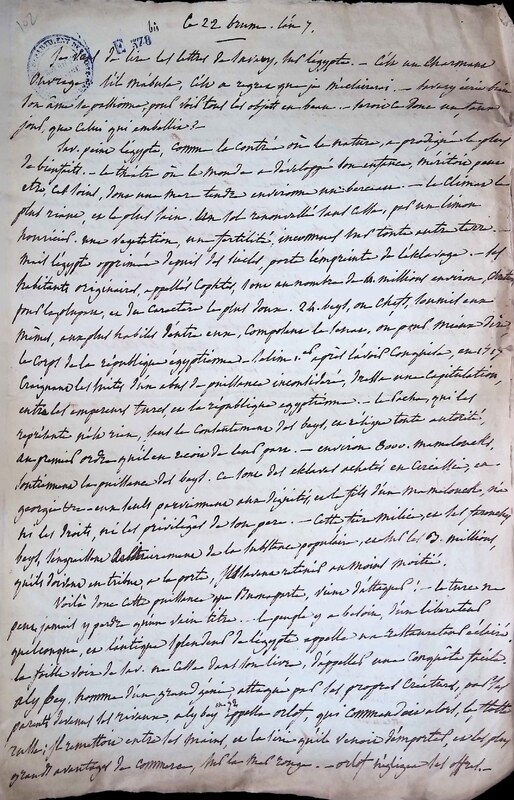 bis
Le 22 brum. l'an 7.
E 378
Je viens de lire les lettres de Savary, sur l'égypte. - C'est un charmant
ouvrage s'il m'abusa, c'est a regret que je m'éclairerai. - Savary écrit bien
son âme se passionne, pour voir tous les objets en beau. - Seroit-ce donc un faux
jour, que celui qui embellit ?
Sav. peint l'égypte, comme la contrée où la nature, a prodigué le plus
de bienfaits. - Le théâtre où le monde a développé son enfance, méritoit peut
etre, cet soins, d'une mer tendre environ un berceau. - Le climat le
plus riant, et le plus sain. Un sol renouvellé sans cesse, par un limon
nourricier. une végétation, une fertilité, inconnues sur toute autre terre. -
Mais l'égypte opprimée depuis des siècles, porte l'empreinte de l'esclavage. - Ses
habitants originaires, appellés Cophtes, sont au nombre de 4. millions environ,
pour la plupart, et du caractère le plus doux. 24. beys, ou chefs, soumis eux
mêmes, aux plus habiles d'entre eux, composent le sénat, ou pour mieux dire
le corps de la république égyptienne. Selim 1er après l'avoir conquise, en 1517
craignant les suites d'un abus de puissance inconsidéré, dressa une capitulation,
entre les empereurs turcs, et la république égyptienne. - Le Pacha, qui les
représente n'est rien, sans le consentement des beys, et abdique toute autorité,
au premier ordre qu'il en reçoit de leur part. - environ 8000. Mamelouks,
soutiennent la puissance des beys. Ce sont des esclaves achetés en Circassie, en
georgie &c - eux seuls parviennent aux dignités, et le fils d'un Mamelouck, n'a
ni les droits, ni les privilèges de son père. - Cette fière milice, et ses
beys, s'enguillent arbitrairement de la substance populaire, et sur les 3. millions,
qu'ils doivent en tribut, a la porte, ils savent retenir au moins moitié.
Voilà donc cette puissance que Buonaparte, vient d'attaquer ! - le turc ne
peut jamais y perdre qu'un vain titre. - le peuple y a besoin, d'un libérateur
quelconque, et l'antique splendeur de l'égypte appelle une restauration éclairée,
la faible voix de Sav. ne cesse dans son livre, d'appeller une conquête facile.
aly bey. homme d'un grand génie, attaqué par ses propres créatures, par ses
parents devenus ses rivaux, aly bey en 72 appella orlof, qui commandoit alors, la flotte
russe ; il remettoit entre les mains, et la Sirie qu'il venoit d'emporter, et les plus
grands avantages de commerce, sur la mer rouge. - orlof négligea ses offres. -